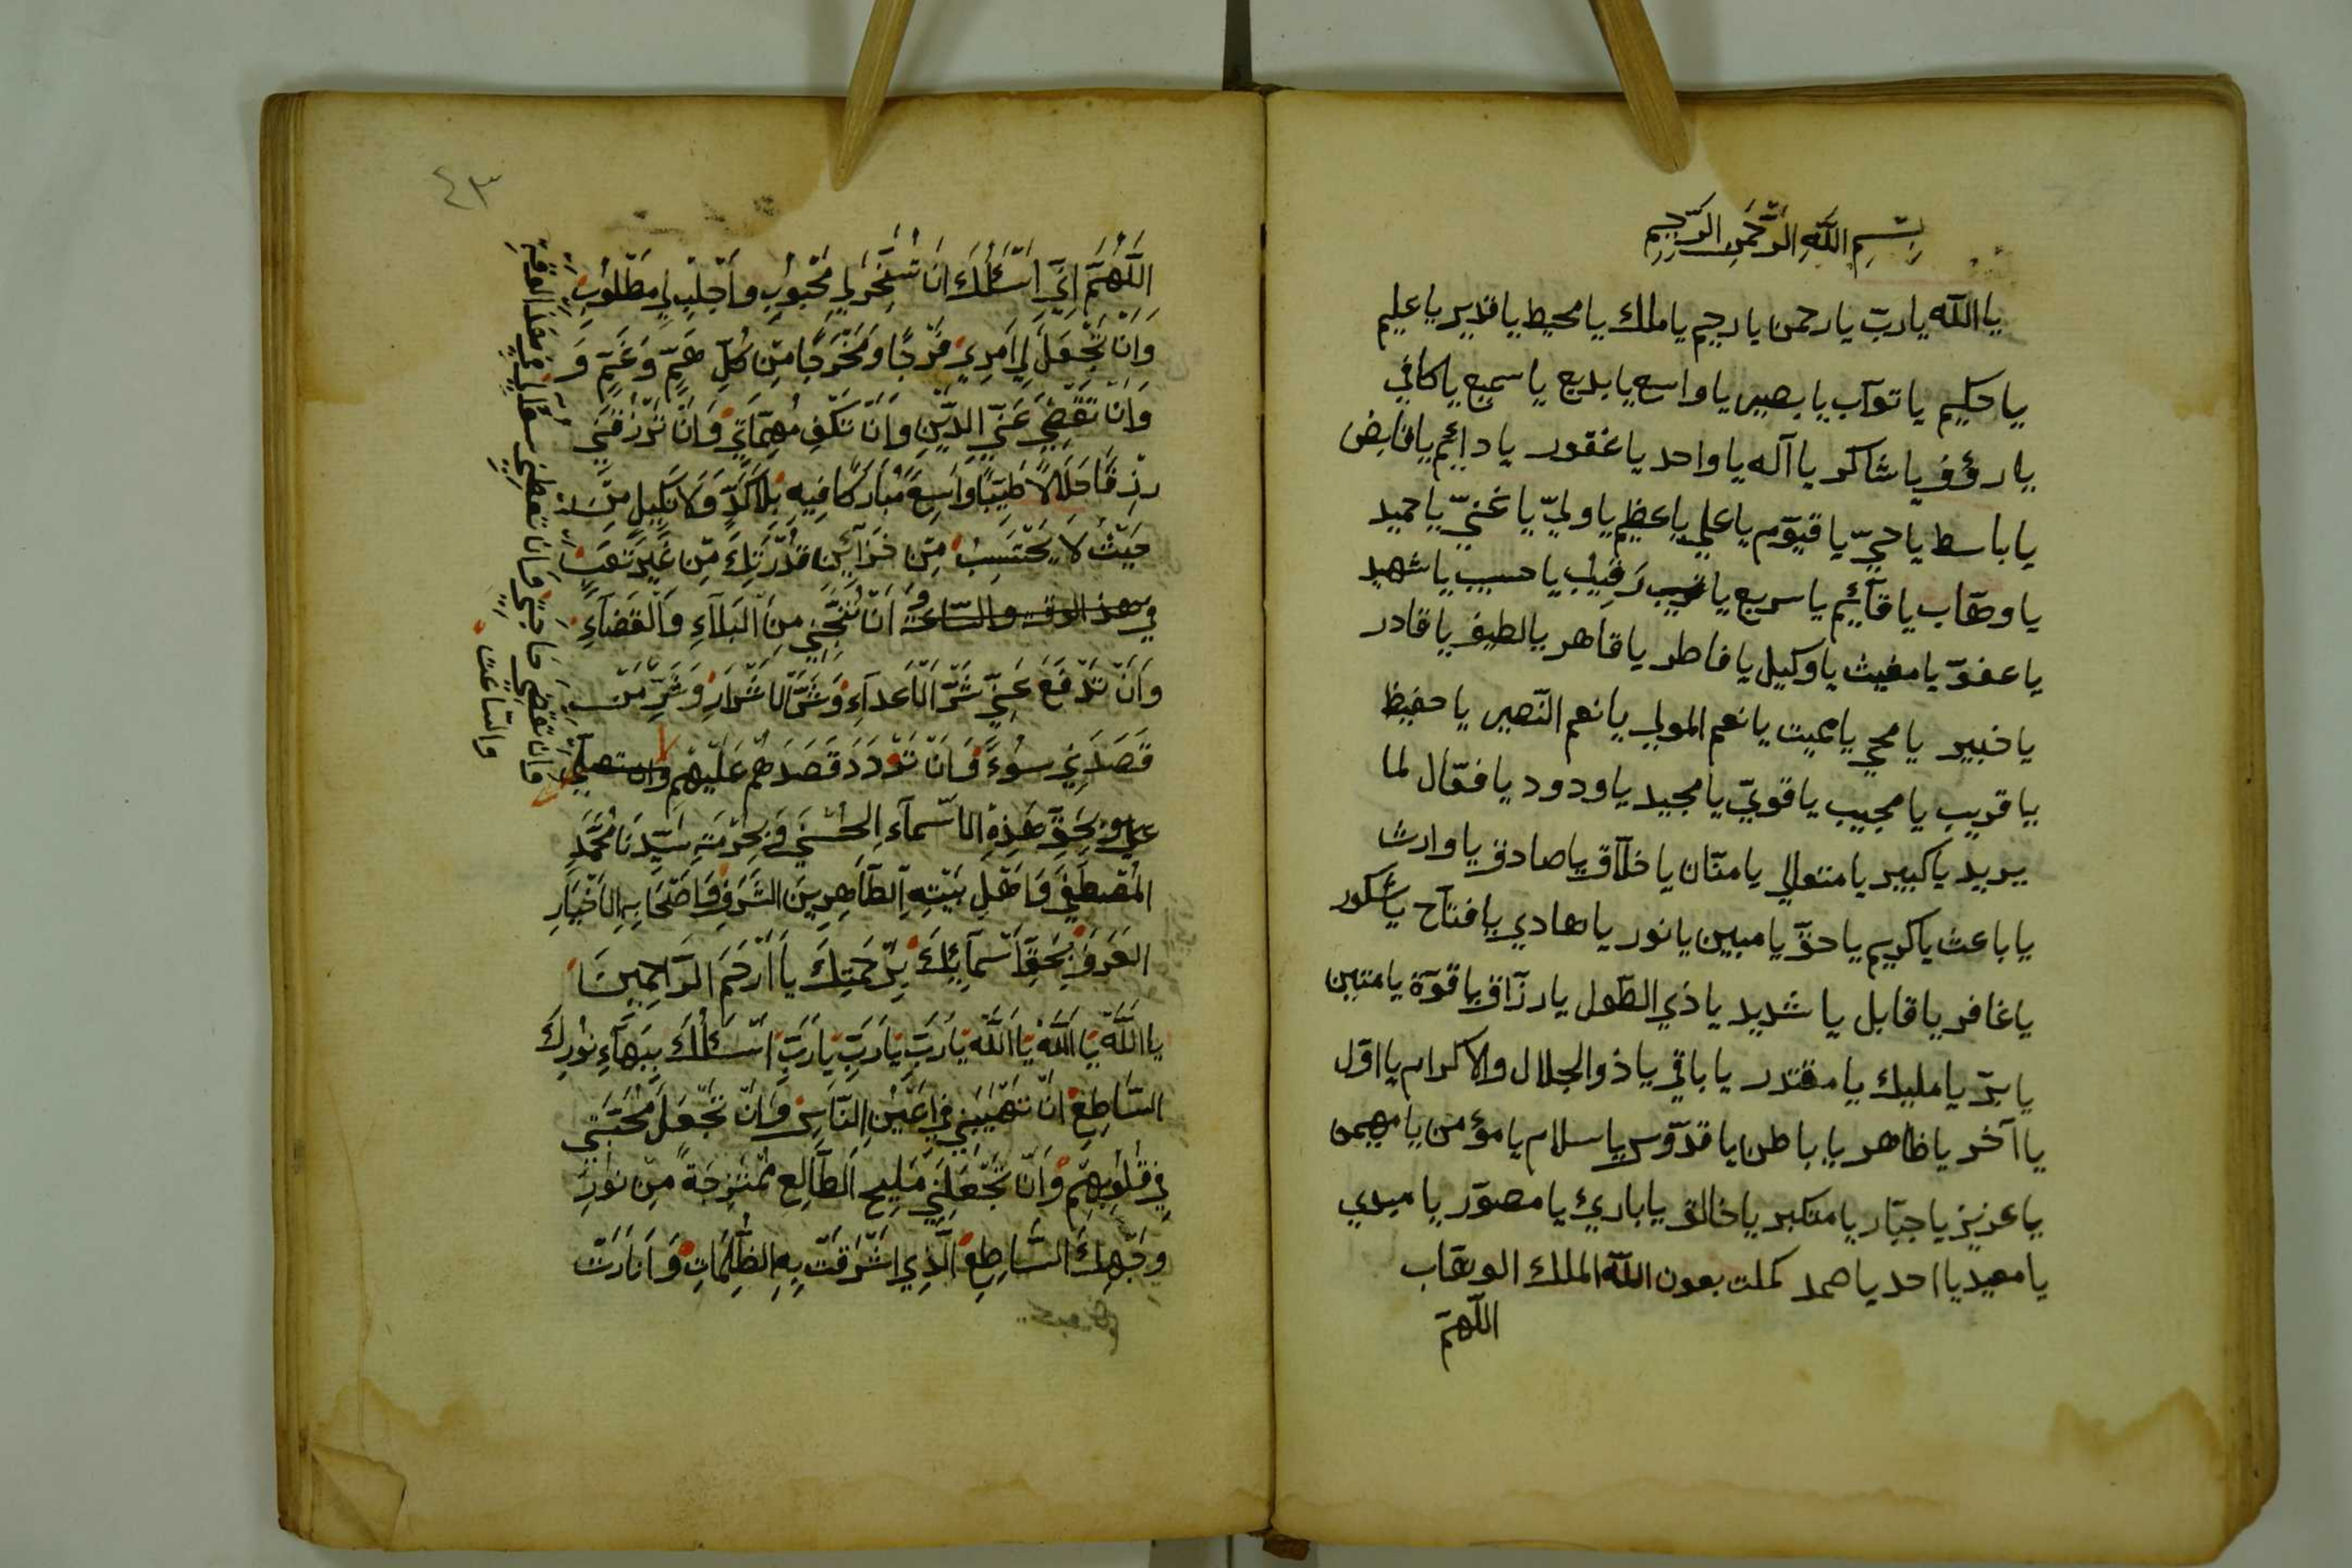 بِسْمِ اللَّهِ الرَّحْمَنِ الرَّحِيمِ
يا الله يا ربّ يا رحمن يا رحيم يا ملك يا محيط يا قدير يا عليم
يا حكيم يا توّاب يا بصير يا واسع يا بديع يا سميع يا كافي
يا رؤف يا شاكر يا آله يا واحد يا غفور يا دائم يا قابض
يا باسط يا حيّ يا قيّوم يا علي يا عظيم يا وليّ يا غنيّ يا حميد
يا وهّاب يا قائم يا سريع يا رقيب يا حسيب يا شهيد
يا عفوّ يا مغيث يا وكيل يا فاطر يا قاهر يا لطيف يا قادر
يا خبير يا محيي يا مميت يا نعم المولي يا نعم النّصير يا حفيظ
يا قريب يا مجيب يا قويّ يا مجيد يا ودود يا فعّال لما
يريد يا كبير يا متعالي يا منّان يا خلّاق يا صادق يا وارث
يا باعث يا كريم يا حقّ يا مبين يا نور يا هادي يا فتاح يا شكور
يا غافر يا قابل يا شديد يا ذي الطّول يا رزّاق يا قوّة يا متين
يا برّ يا مليك يا مقتدر يا باقي يا ذو الجلال والاكرام يا اوّل
يا آخر يا ظاهر يا باطن يا قدّوس يا سلام يا مؤمن يا مهيمن
يا عزيز يا جبّار يا متكبر يا خالق يا بارئ يا مصوّر يا مبدي
يا معيد يا احد يا صمد كملت بعون الله الملك الوهّاب
اللّهمّ
٤٣
اللَّهُمَّ اِنِّي اَسْئَلُكَ اَنْ تُسَخِّرَ لِي مَحْبُوبِي وَاَجْلِبْ لِي مَطْلُوبِي
وَاَنْ تَجْعَلَ لِي اَمْرِي فَرَجًا وَمَخْرَجًا مِنْ كُلِّ هَمٍّ وَغَمٍّ وَ
وَاَنْ تَقْضِيَ عَنِّي الدَّيْنِ وَاَنْ تَكْفِ مُهِمَّاتِي وَاَنْ تَرْزُقَنِي
رِزْقًا حَلَالًا طَيِّبًا وَاسِعً مُبَارَكًا فِيهِ بِلَا كَدٍّ وَلَا
حَيْثُ لَا يَحْتَسِبْ مِنْ خَزَائِنِ قُدْرَتِكَ مِنْ غَيْرِ تَعَبٍ
في هذ الوقت والسّاعة وَ اَنْ تُنَجِّنِي مِنَ الْبَلَآءِ وَالْقَضَآءِ
وَاَنْ تَدْفَعَ عَنِّي شَرَّ الْاَعْدَآءِ وَشَرَّ الْاَشْرَارِ وَشَرِّ مَنْ
قَصَدَنِي سُوْءً وَاَنْ تَرْدَدَ قَصَدَهُمْ عَلَيْهِمْ
بِحَقِّ هَذِهِ الْاَسْمَآءِ الْحُسْنَي وَبِحُرْمَةِ سَيِّدِنَا مُحَمَّدِ
الْمُصْطَفَي وَاَهْلِ بَيْتِهِ الطَّاهِرِينَ الشَّرَفِ وَاَصْحَابِهِ الْاَخْيَارِ
بِحَقِّ اَسْمَآئِكَ بِرَحْمَتِكَ يَا اَرْحَمَ الرَّاحِمِينَ
يا اللَّهُ يَا اللَّهُ يَا اللَّهُ يَا رَبِّ يَا رَبِّ يَا رَبِّ اَسْئَلُكَ بِبَهَآءِ نُورِكَ
السَّاطِعِ اَنْ تَهَيِّبَنِي فِي اَعْيُنِ النَّاسِ وَاَنْ تَجْعَلَ مَحَبَّتِي
فِي قُلُوبِهِمْ وَاَنْ تَجْعَلَنِي مَلِيحَ الطَّالِعِ مُمْتَزِجَةً مِنْ نُورِ
وَجْهِكَ السَّاطِعِ الَّذِي اَشْرَقَتْ بِهِ الظُّلُمَاتِ وَاَنَارَتْ
وَاَنْ تَقْضِيَ حَاجَتِي وَاَنْ تُعْطِنِي سُؤْلِي فِي هَذَا الْوَقْتِ
وَالسَّاعَتِ